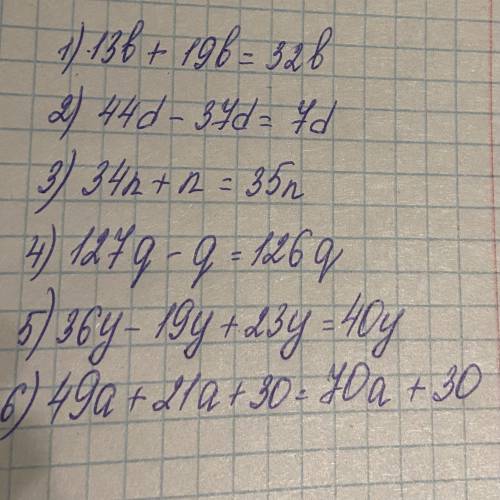 1) 13b + 19b = 32b
2) 44d - 37d = 7d
3) 34n + n = 35n
4) 127q - q = 126q
5) 36y - 19y + 23y = 40y
6) 49a + 21a + 30 = 70a + 30